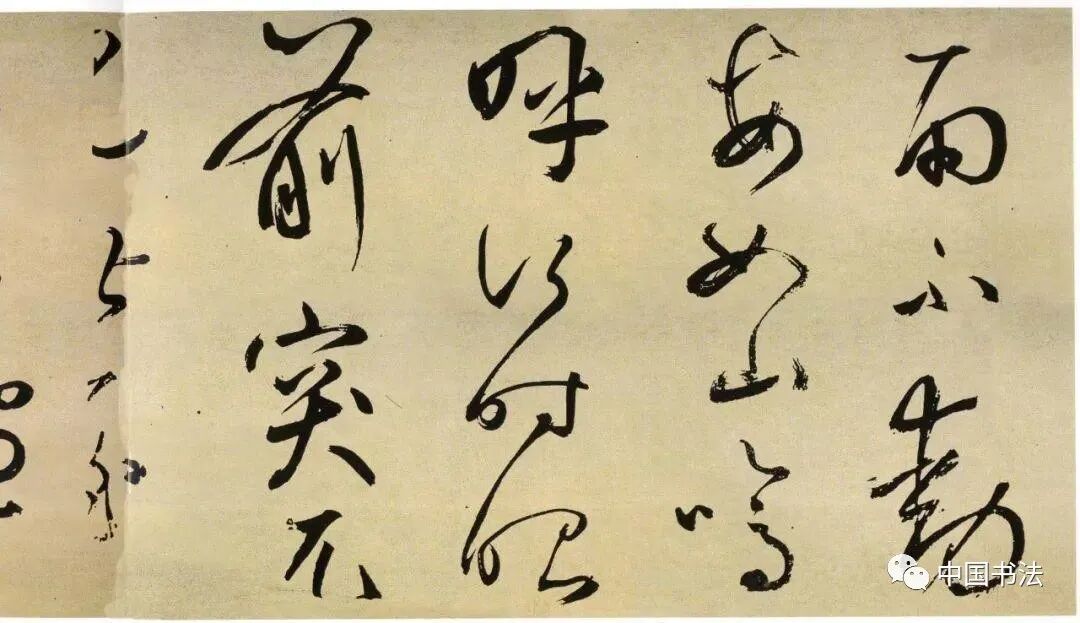 雨不動
安如山嗚
呼何時眼
前突兀
中国书法